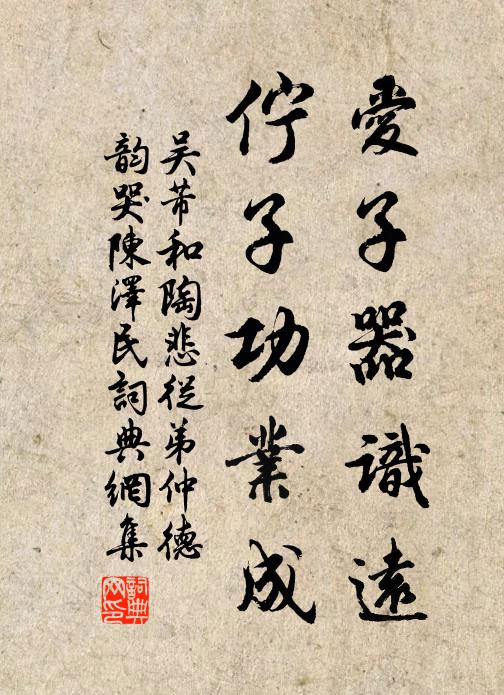 愛子器識遠
佇子功業成
吴芾和陶悲從弟仲德
韵哭陳澤民詞典網集
詞典网印